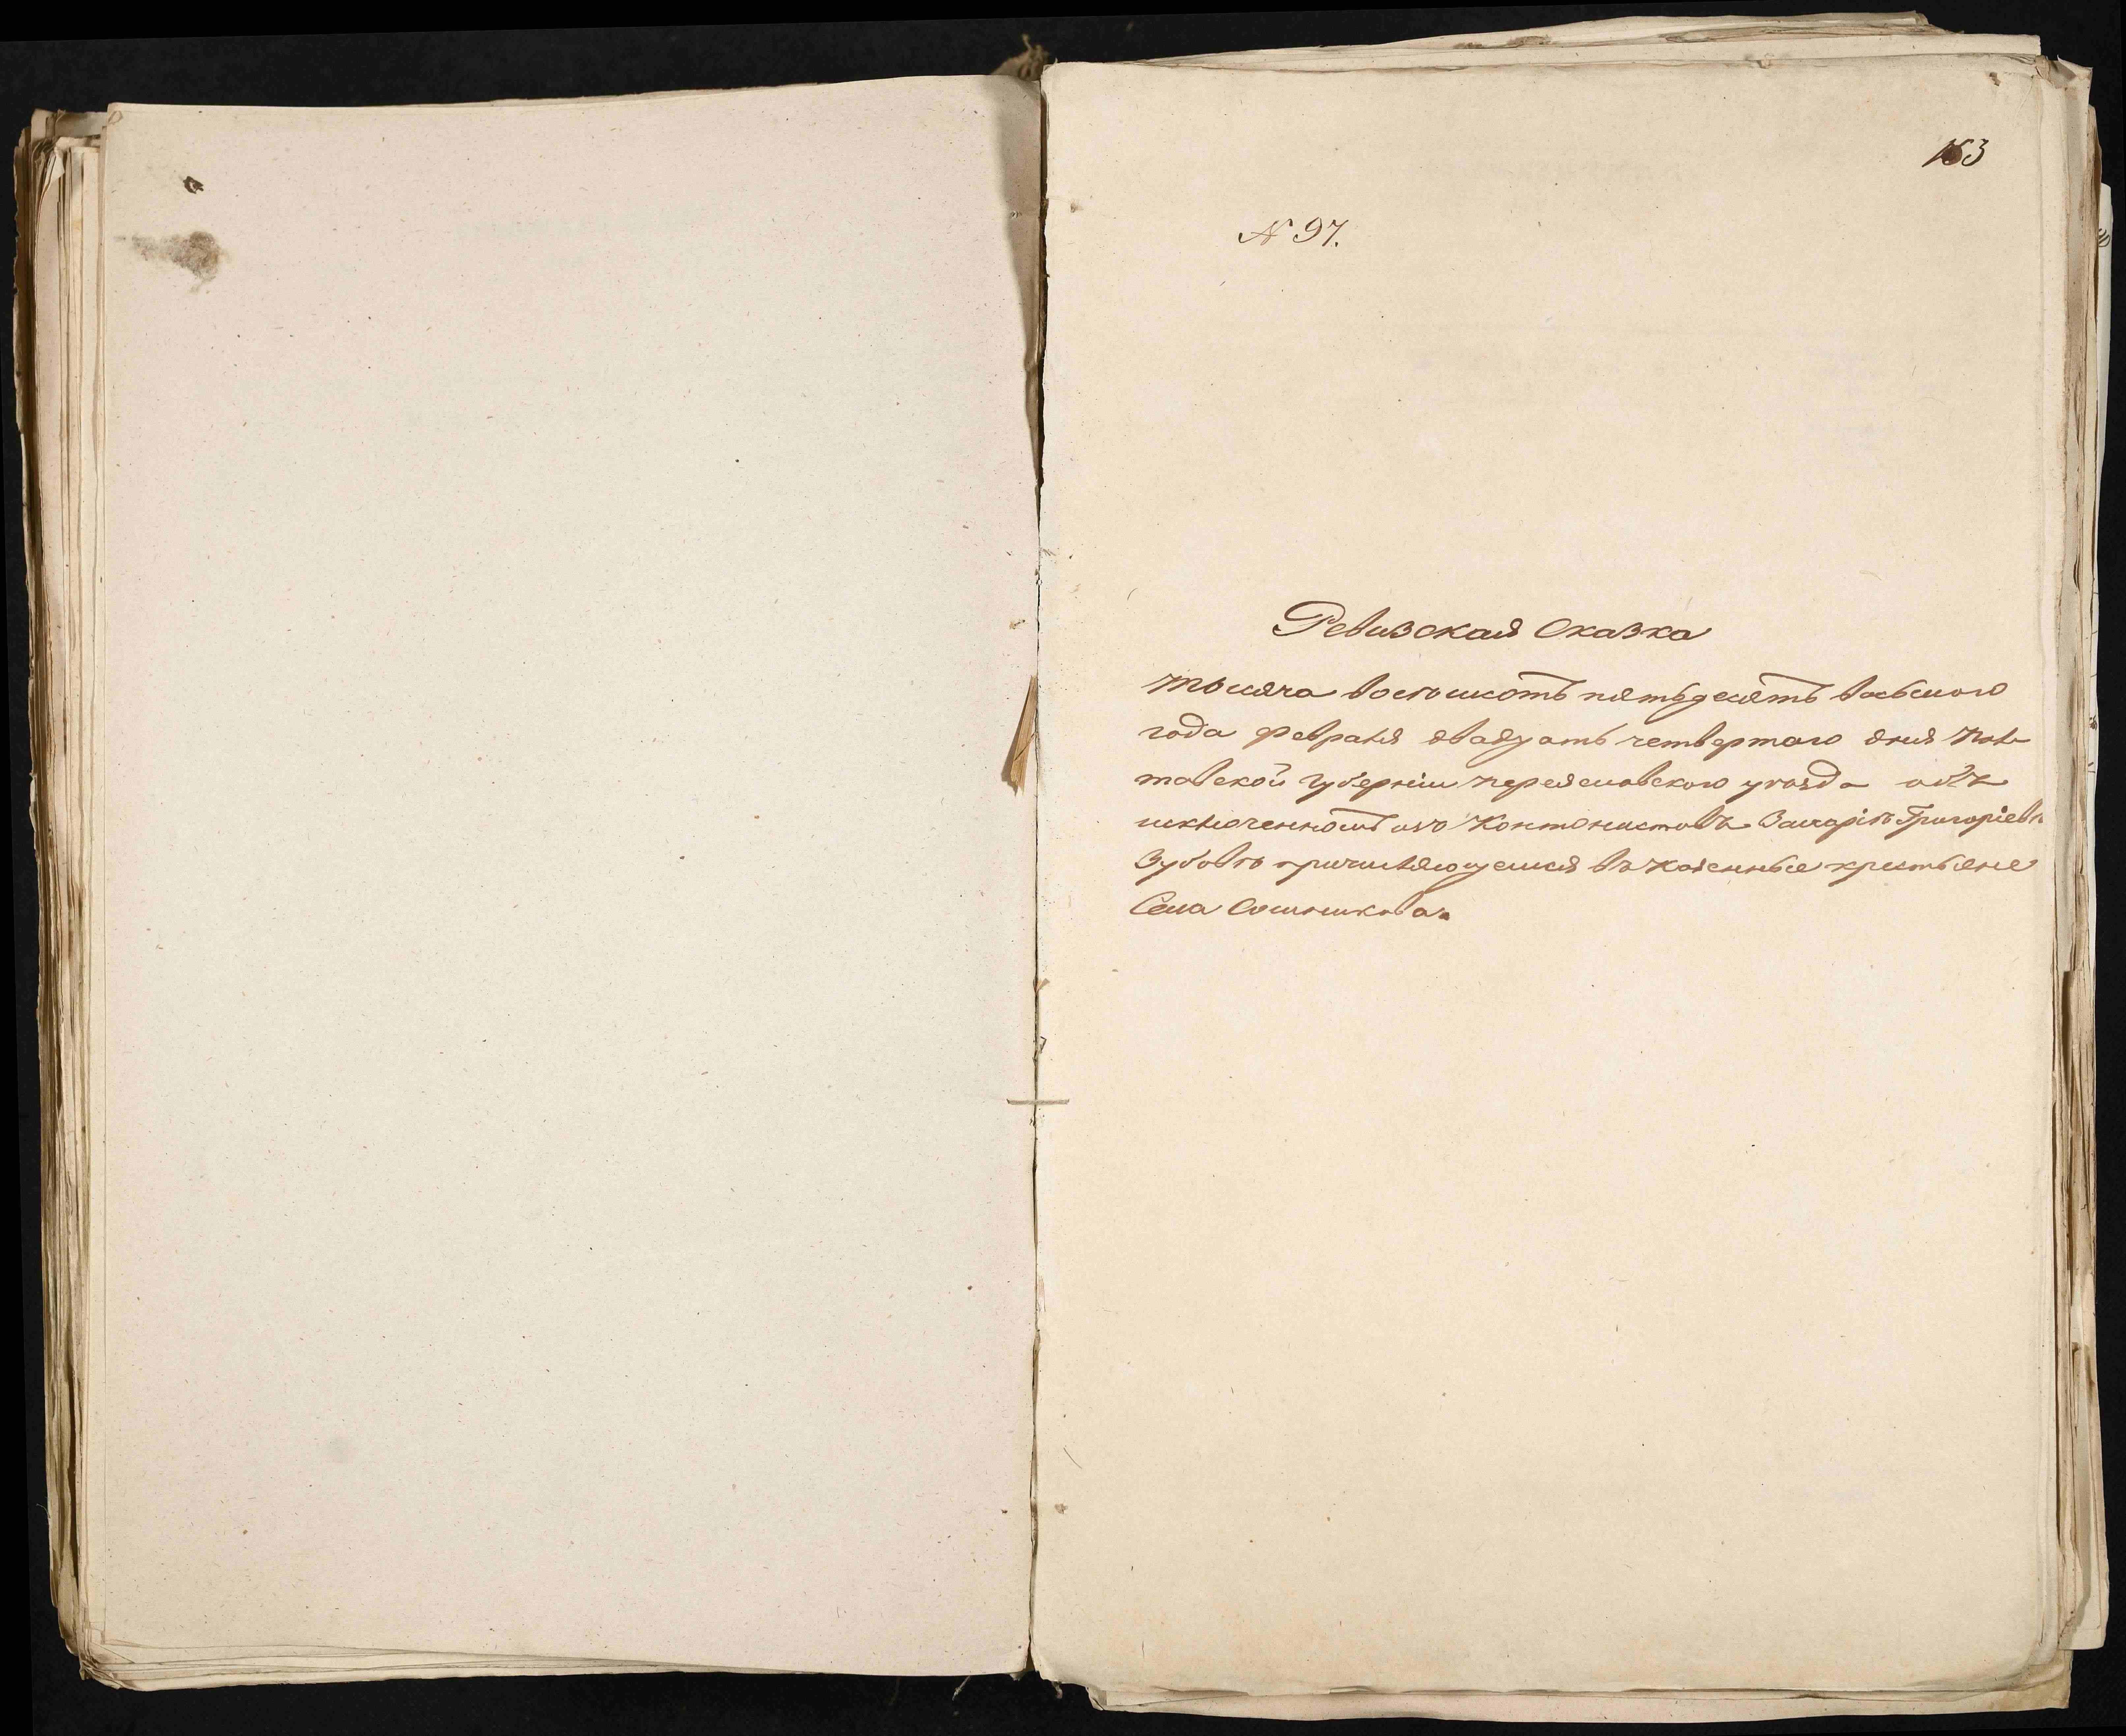 163
№ 97.
Ревизская Сказка
тысяча восемьсотъ пятьдесятъ восьмого
года февраля двадцать четвертого дня Пол-
тавской губерніи переяславского уѣзда объ
исключенномъ изъ Кантонистовъ Захаріѣ Григоріевѣ
Зубовѣ причисляющемся въ казенные крестьяне
Села Сошникова.